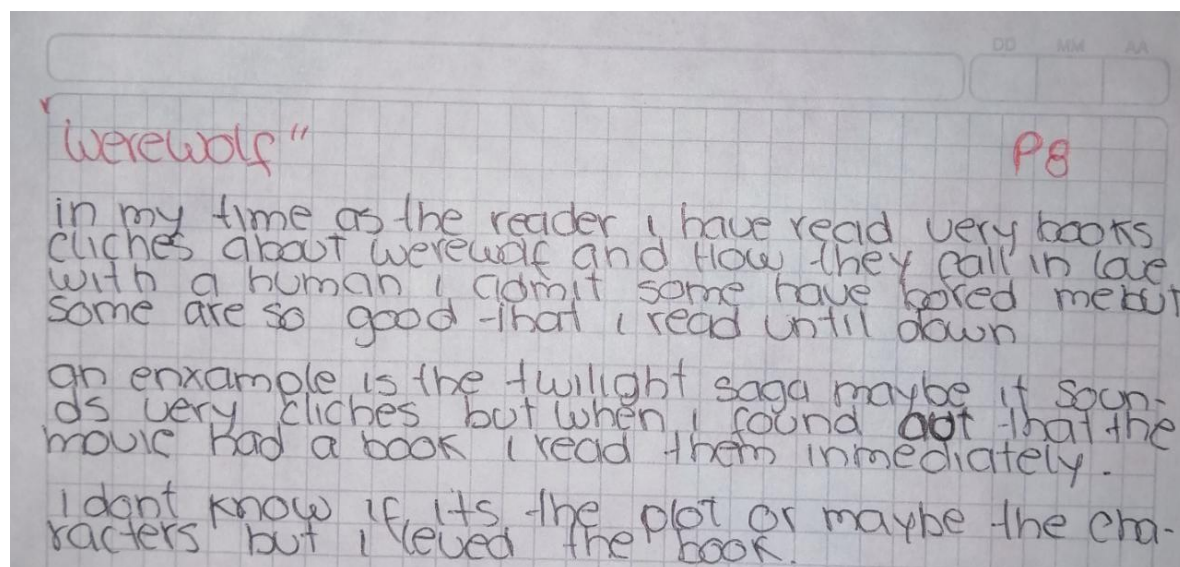 DD MM AA
"Werewolf" P8
in my time as the reader i have read very books
cliches about werewolf and How they fall in love
with a human i admit some have bored me but
some are so good that i read until down
an enxample is the twilight saga maybe it soun-
ds very cliches but when i found out that the
movie had a book i read them inmediately.
I dont know if its the plot or maybe the cha-
racters but i leved the book.